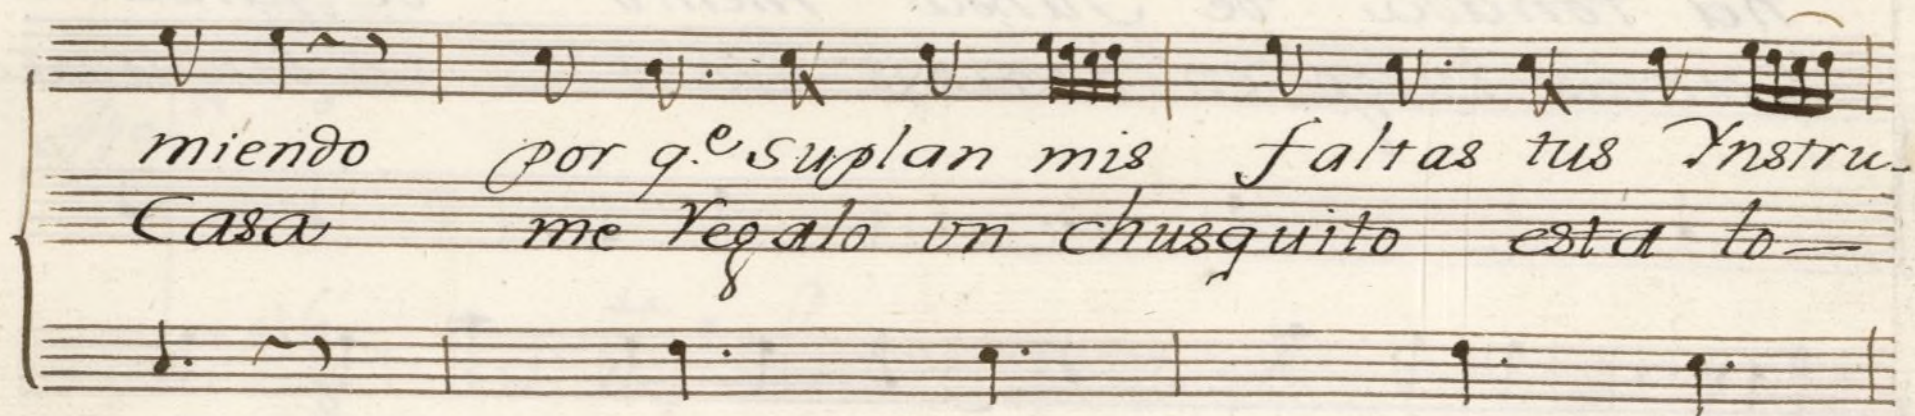 miendo por q.e suplan mis faltas tus Ynstru-
Casa me regalo un chusquito esta lo-